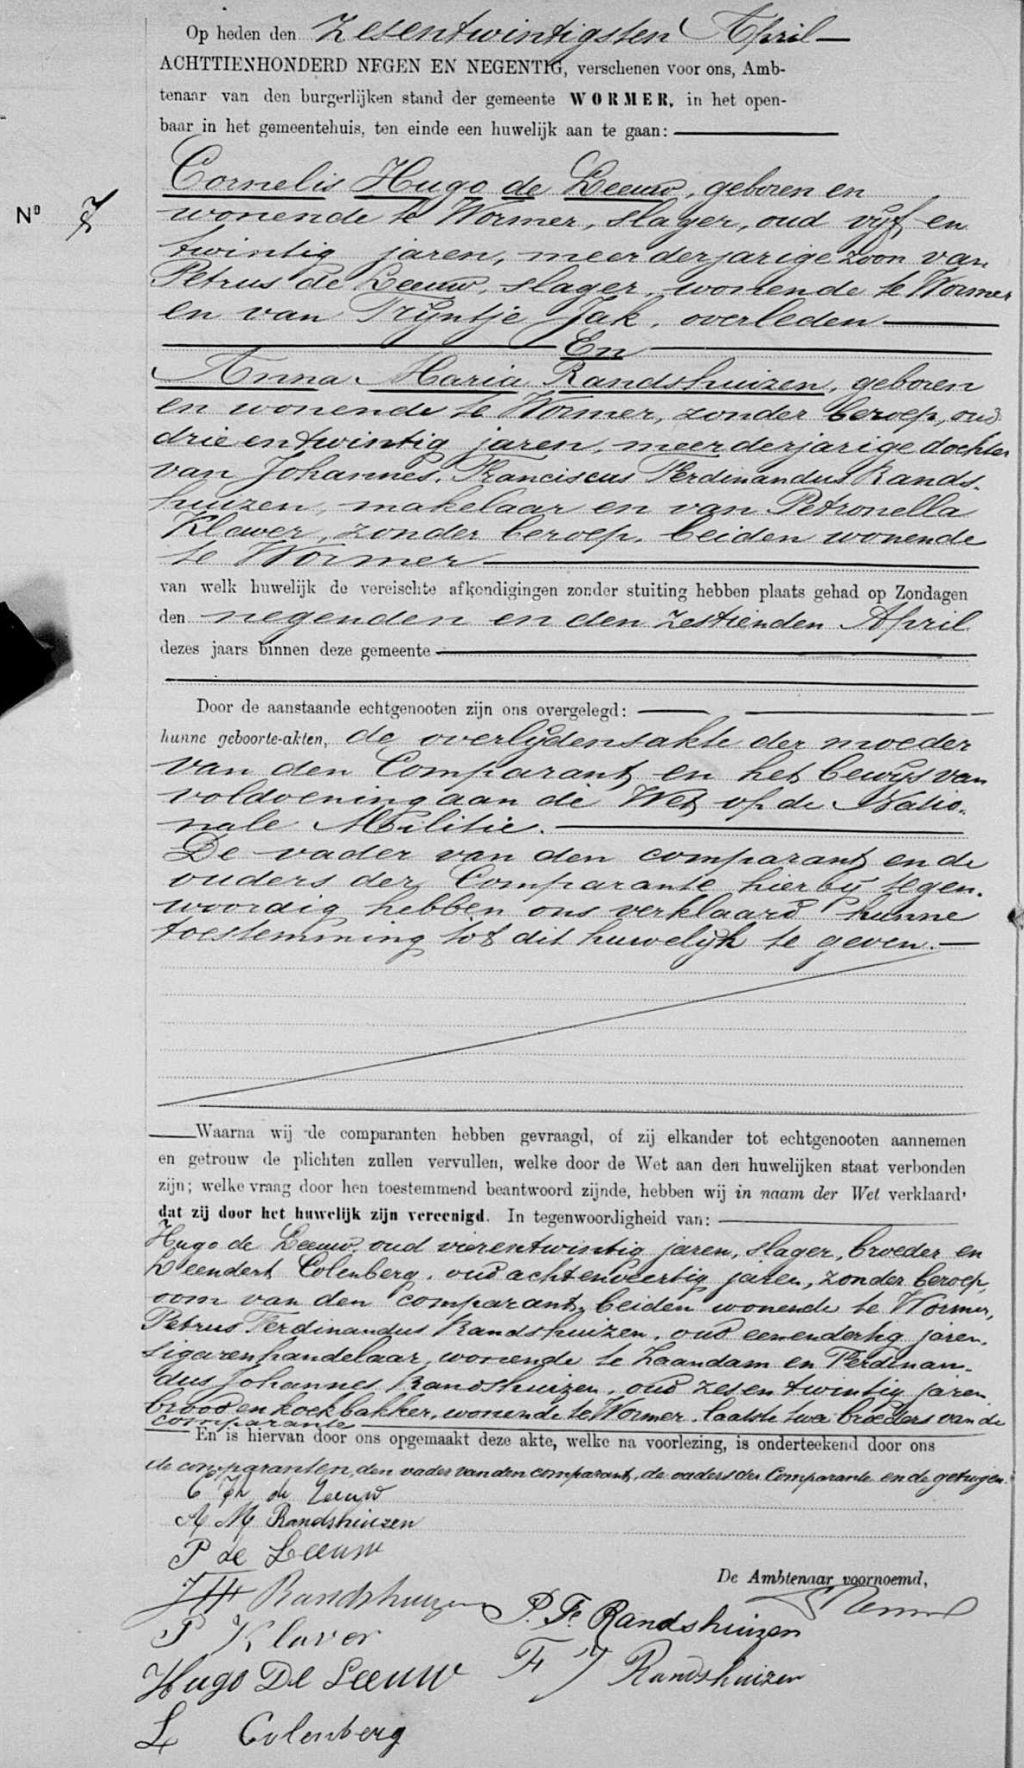 Op heden den zesentwintigsten April
ACHTTIENHONDERD NEGEN EN NEGENTIG, verschenen voor ons, Amb-
tenaar van den burgerlijken stand der gemeente WORMER, in het open-
baar in het gemeentehuis, ten einde een huwelijk aan te gaan:
Cornelis Hugo de Leeuw, geboren en
No 7
wonende te Wormer, slager, oud vijf en
twintig jaren, meerderjarige zoon van
Petrus de Leeuw, slager, wonende te Wormer
en van Trijntje Jak, overleden
En
Anna Maria Randshuizen, geboren
en wonende te Wormer, zonder beroep, oud
drie en twintig jaren, meerderjarige dochter
van Johannes Franciscus Ferdinandus Rands-
huizen, makelaar en van Petronella
Klawer, zonder beroep, beiden wonende
te Wormer
van welk huwelijk de vereischte afkondigingen zonder stuiting hebben plaats gehad op Zondagen
den negenden en den zestienden April
dezes jaars binnen deze gemeente
Door de aanstaande echtgenooten zijn ons overgelegd:
hunne geboorte-akten, de overlijdensakte der moeder
van den Comparant, en het bewijs van
voldoening aan de Wet op de Natio-
nale Militie.
De vader van den comparant en de
ouders der Comparante hierbij tegen-
woordig hebben ons verklaard hunne
toestemming tot dit huwelijk te geven.
Waarna wij de comparanten hebben gevraagd, of zij elkander tot echtgenooten aannemen
en getrouw de plichten zullen vervullen, welke door de Wet aan den huwelijken staat verbonden
zijn; welke vraag door hen toestemmend beantwoord zijnde, hebben wij in naam der Wet verklaard,
dat zij door het huwelijk zijn vereenigd. In tegenwoordigheid van:
Hugo de Leeuw, oud vierentwintig jaren, slager, broeder en
Leendert Colenberg, oud achtenveertig jaren, zonder beroep,
oom van den comparant, beiden wonende te Wormer,
Petrus Ferdinandus Randshuizen, oud eenendertig jaren,
sigarenhandelaar, wonende te Zaandam en Ferdinan-
dus Johannes Randshuizen, oud zesentwintig jaren
brood en koekbakker, wonende te Wormer, laatste twee broeders van de
comparante
En is hiervan door ons opgemaakt deze akte, welke na voorlezing, is onderteekend door ons
de comparanten, den vader van den comparant, de ouders der Comparante en de getuigen.
de Leeuw
A M Randshuizen
P de Leeuw
De Ambtenaar voornoemd,
Randshuizen
P. F. Randshuizen
P Klaver
F J Randshuizen
Hugo De Leeuw
L Colenberg